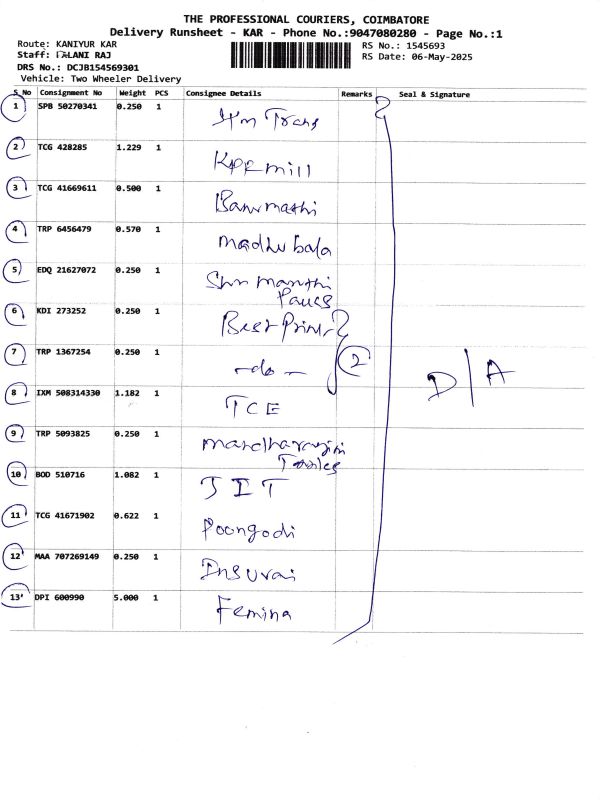 THE PROFESSIONAL COURIERS, COIMBATORE
Delivery Runsheet - KAR - Phone No.:9047080280 - Page No.:1
Route: KANIYUR KAR RS No.: 1545693
Staff: PALANI RAJ RS Date: 06-May-2025
DRS No.: DCJB154569301
Vehicle: Two Wheeler Delivery
S No Consignment No Weight PCS Consignee Details Remarks Seal & Signature
1 SPB 50270341 0.250 1 Trans
2 TCG 428285 1.229 1 KPR mill
3 TCG 41669611 0.500 1 Banumathi
4 TRP 6456479 0.570 1 madhubala
5 EDQ 21627072 0.250 1
6 KDI 273252 0.250 1 Best Print
7 TRP 1367254 0.250 1 -do- 2
D/A
8 IXM 508314330 1.182 1 TCE
9 TRP 5093825 0.250 1
10 BOD 510716 1.082 1 JIT
11 TCG 41671902 0.622 1 Poongodi
12 MAA 707269149 0.250 1
13 DPI 600990 5.000 1 Femina